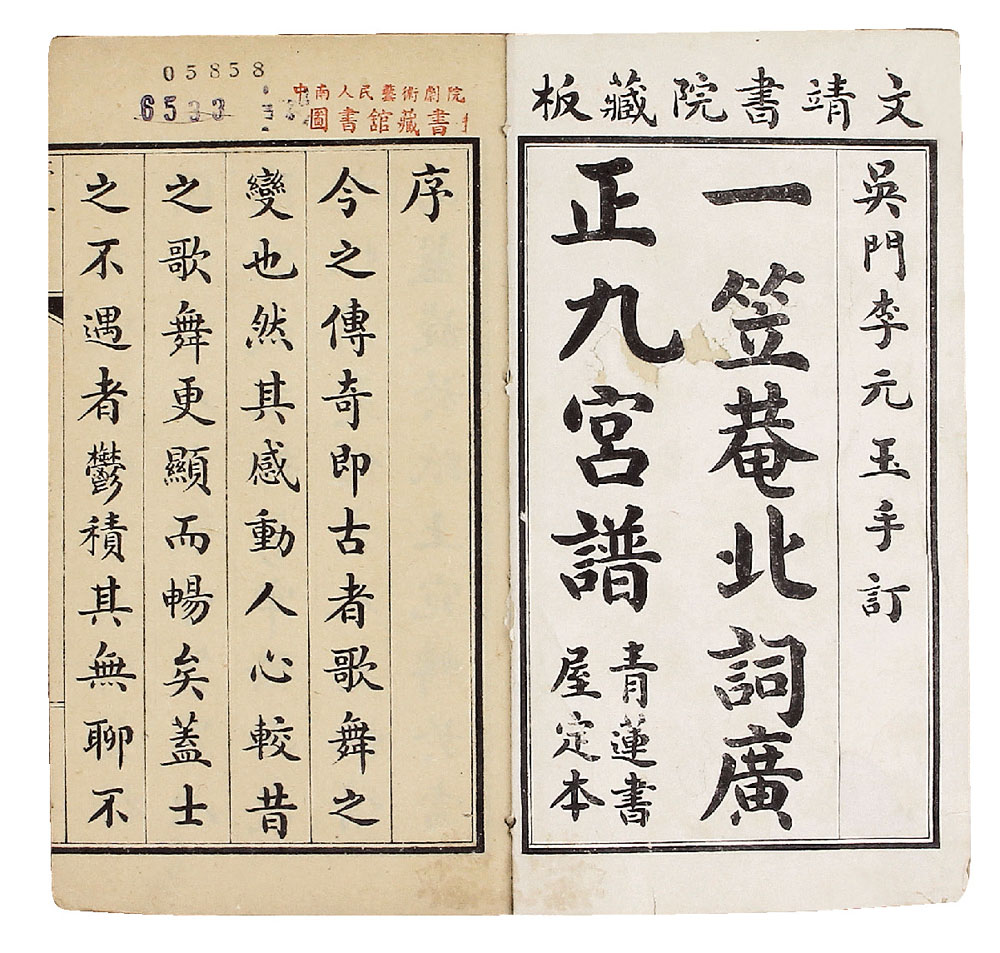 文靖書院藏板
吳門李元玉手訂
一笠菴北詞廣
正九宮譜
青蓮書
屋定本
05858
6533
中南人民藝術劇院
圖書館藏書
序
今之傳奇即古者歌舞之
變也然其感動人心較昔
之歌舞更顯而暢矣蓋士
之不遇者鬱積其無聊不